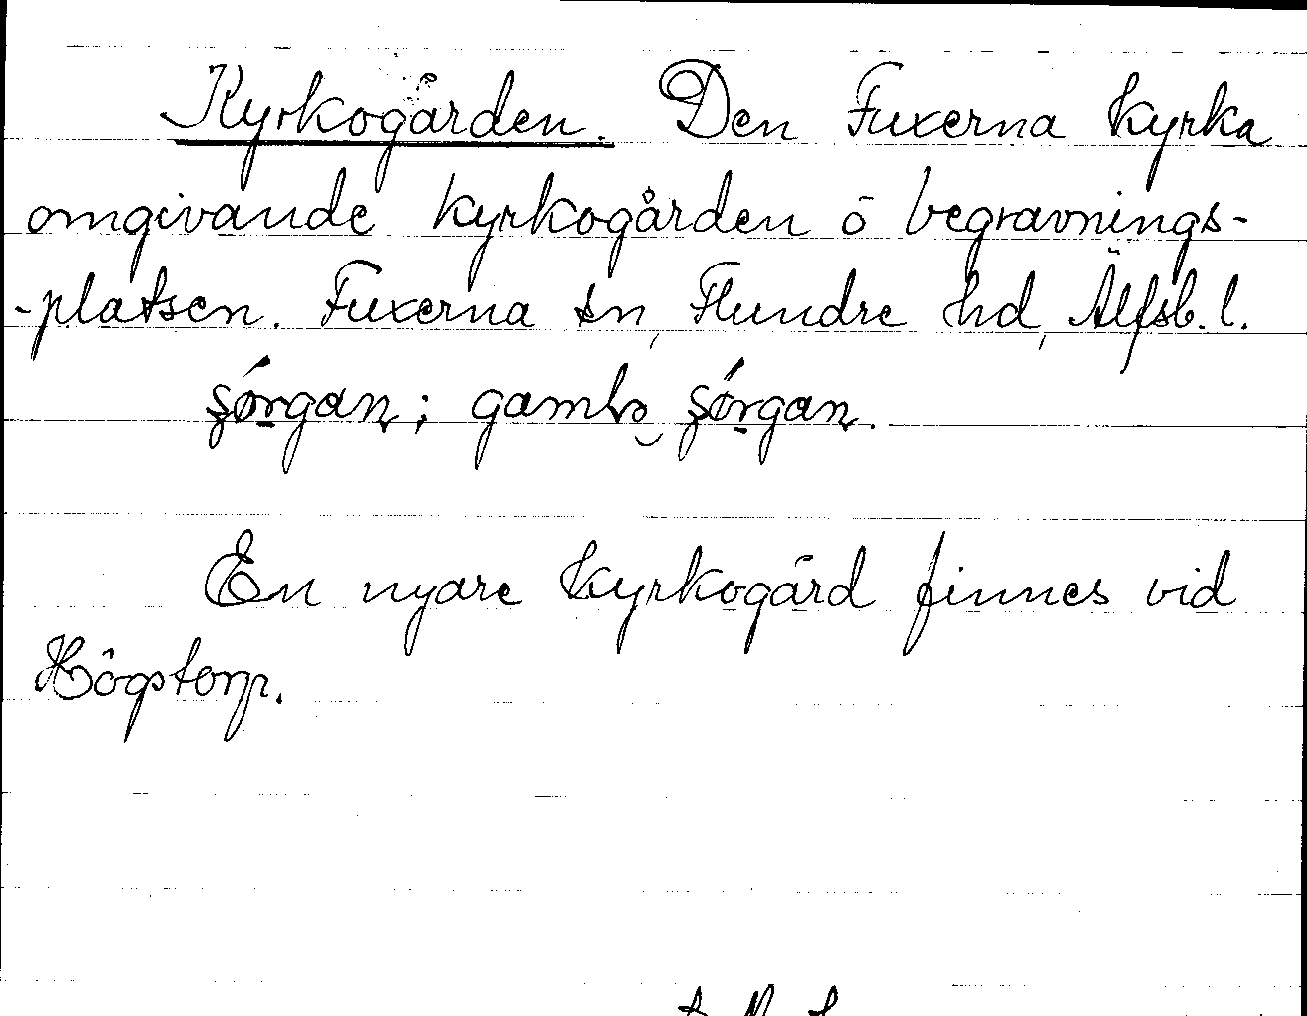 Kyrkogården. Den Fuxerna kyrka
omgivande kyrkogården o begravnings-
-platsen. Fuxerna sn, Flundre hd, Älfsb. l.
En nyare kyrkogård finnes vid
Högstorp.